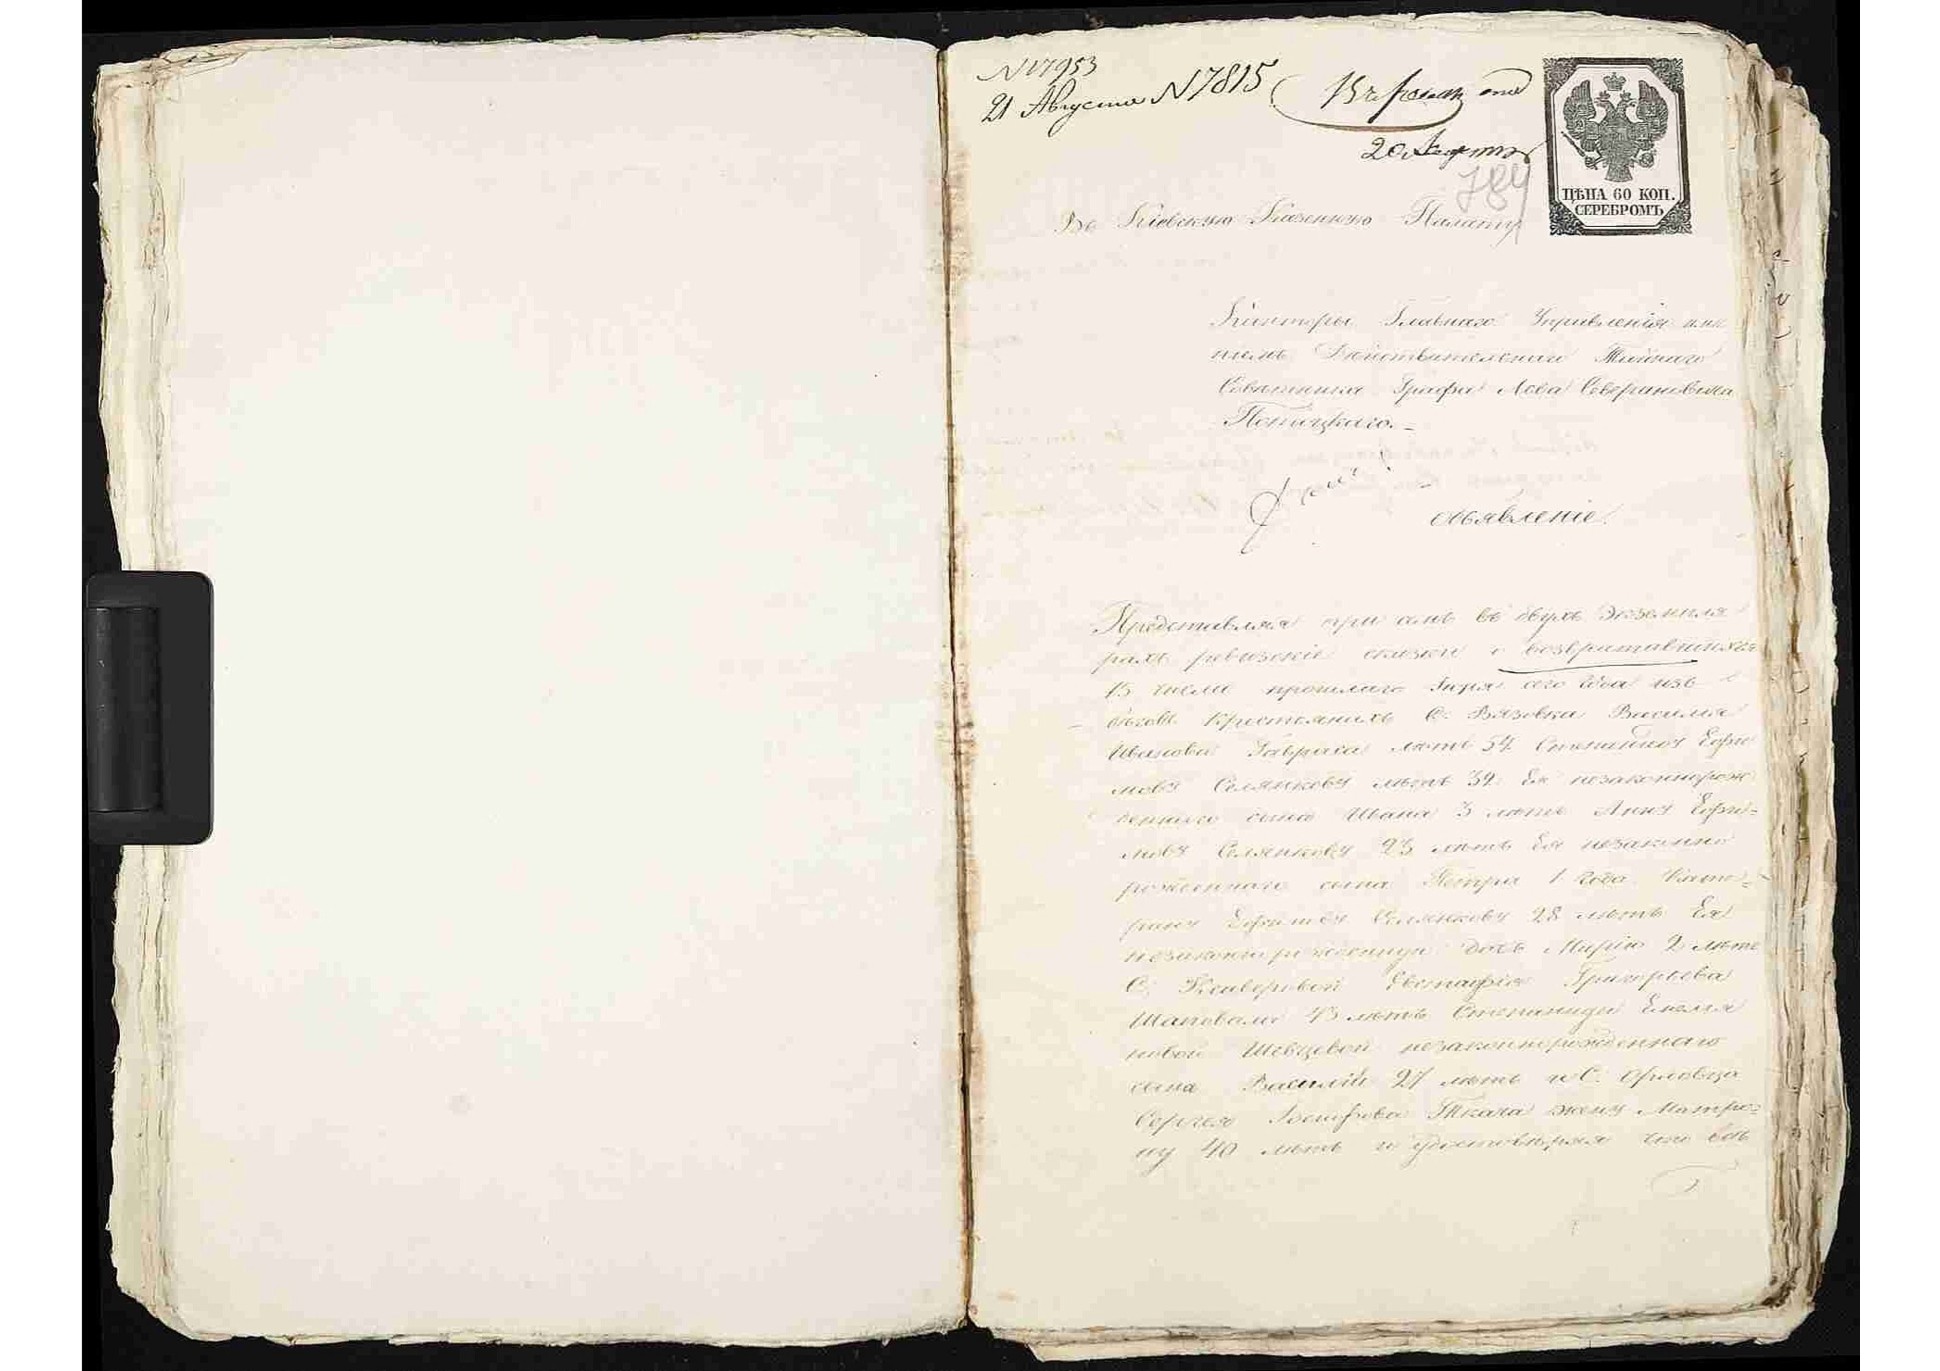 N 17953
21 Августа N 7815
20 Августа
784
ЦѢНА 60 КОП.
СЕРЕБРОМЪ
Въ Кіевскую Казенную Палату
Конторы Главнаго Управленія имѣ
ніемъ Дѣйствительнаго Тайнаго
Советника Графа Льва Севериновича
Потоцкаго.
Объявленіе.
Представляя при семъ въ двухъ Экземпля
рахъ ревизскіе сказки о возвратившихся
15 числа прошлаго сего года изъ
бѣговъ Крестьянихъ С. Вязовка Василия
Иванова лѣтъ 54 Степаниду Ефи
мову Селянкову лѣтъ 34 Ея незаконнорож
деннаго сына Ивана 3 лѣтъ Анну Ефи=
мову Селянкову 23 лѣтъ Ея незаконно
рожденнаго сына Петра 1 года Кате=
рину Ефимову Селянкову 28 лѣтъ Ея
незаконнорожденную дочь Марію 2 лѣтъ
С. Евстафія Григорьева
Шаповала 43 лѣтъ Степаниды Емелья
новой Шевцевой незаконнорожденнаго
сына Василій 27 лѣтъ и С. Орловца
Сергея Ткача жену Матро=
ну 40 лѣтъ и удостовѣряя что всѣ